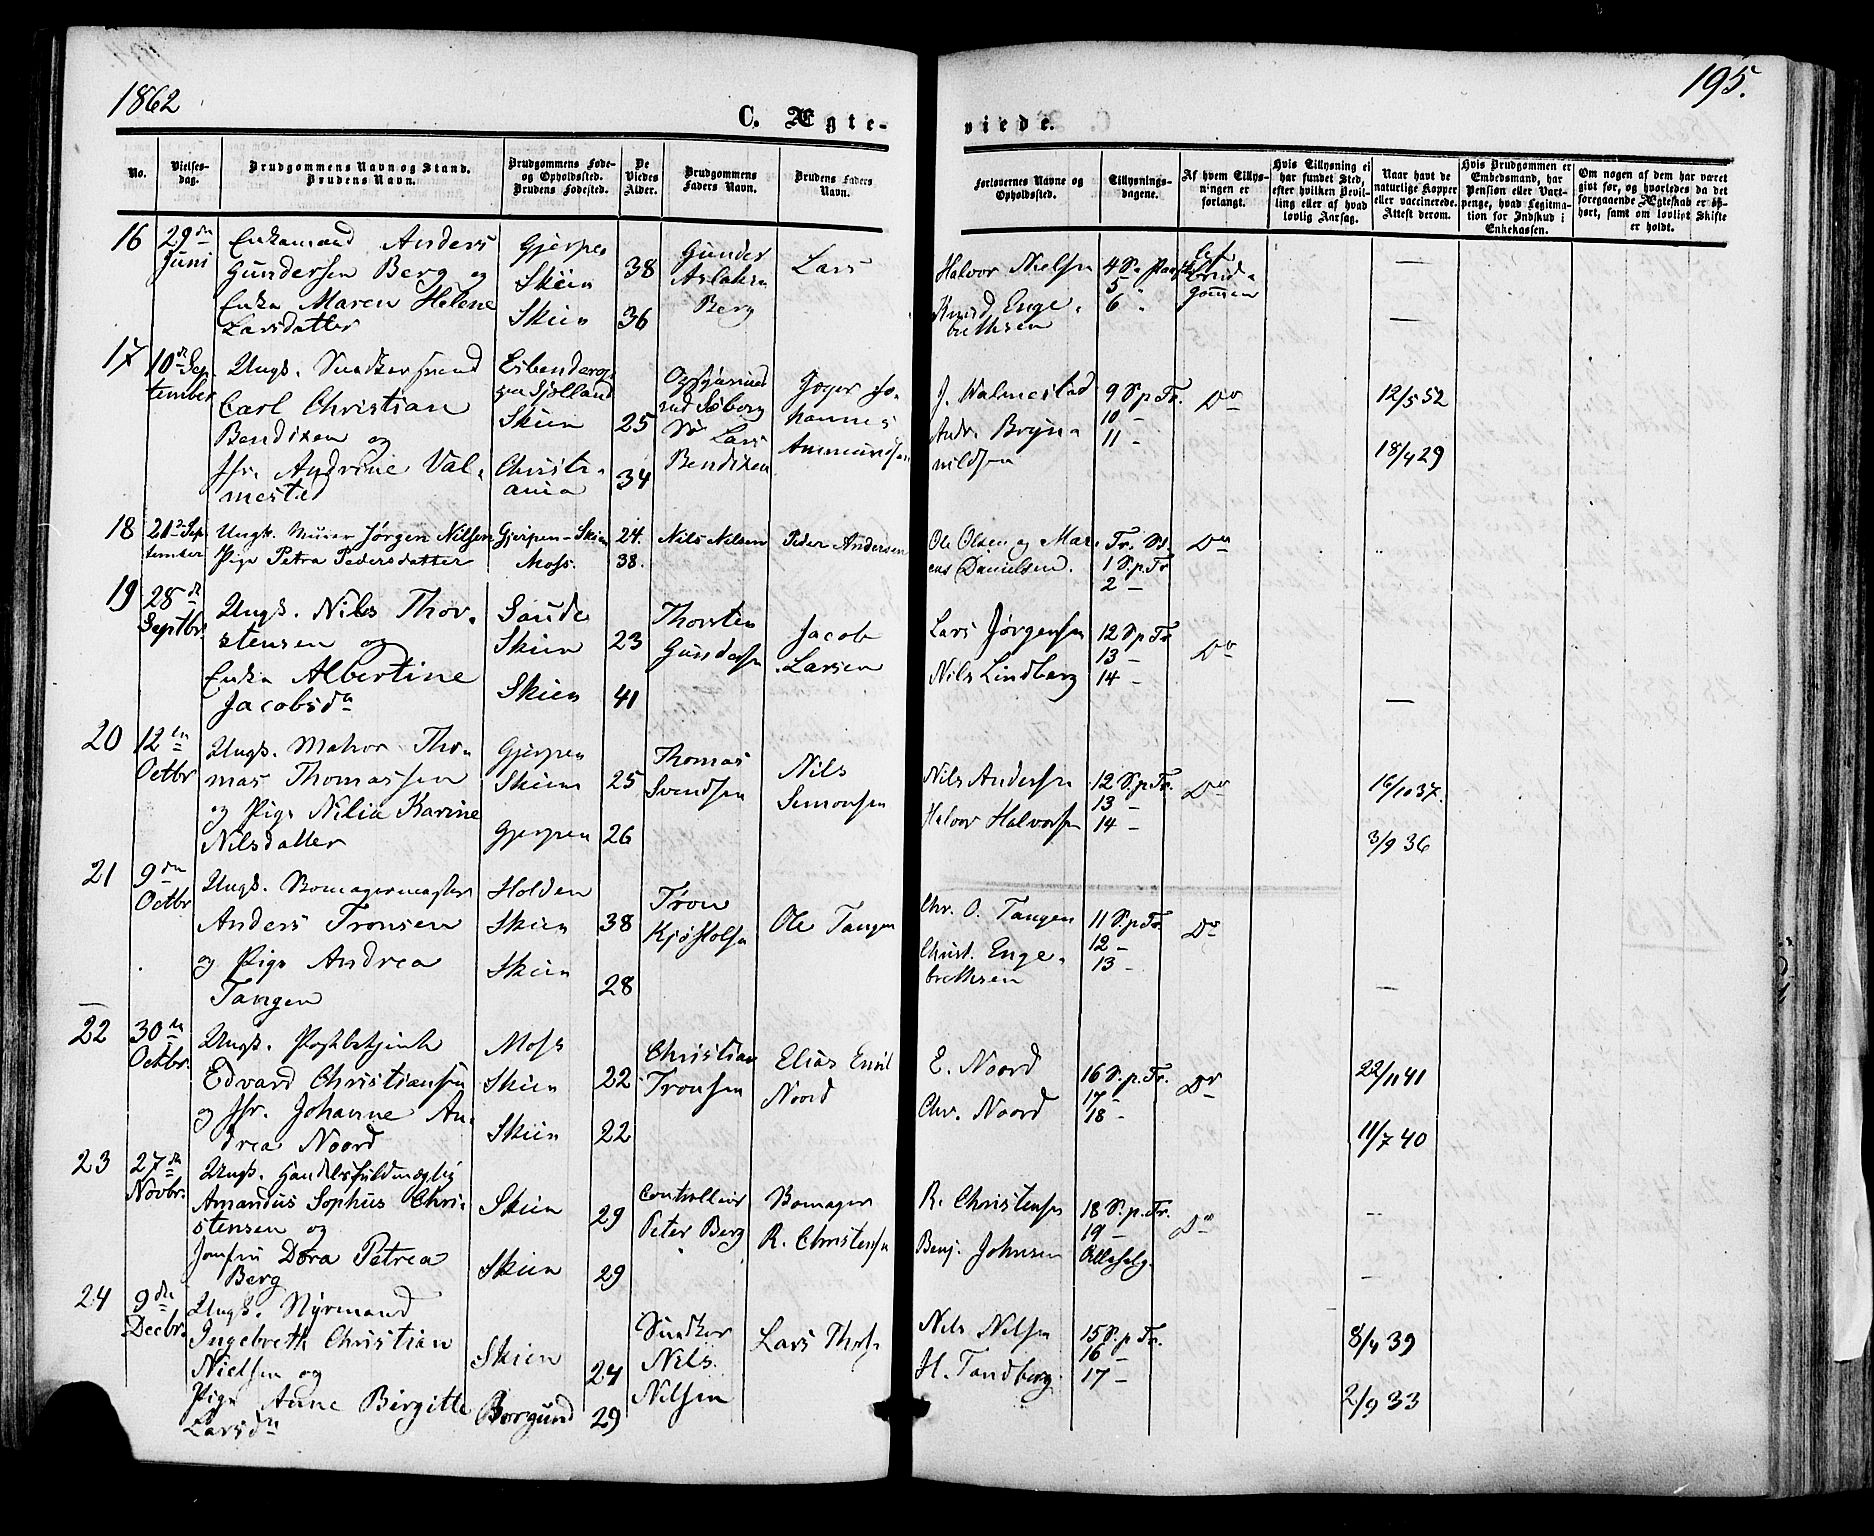 1862
195.
C. Ægte-
viede.
No.
Vielses-
dag.
Brudgommens Navn og Stand.
Brudens Navn.
Brudgommens Føde-
og Opholdssted.
Brudens Fødested.
De
Viedes
Alder.
Brudgommens
Faders Navn.
Brudens Faders
Navn.
Forlovernes Navne og
Opholdssted.
Tillysnings-
dagene.
Af hvem Tillys-
ningen er
forlangt.
Hvis Tillysning ei
har fundet Sted,
efter hvilken Bevil-
ling eller af hvad
lovlig Aarsag.
Naar havt de
naturlige Kopper
eller vaccinerede.
Attest derom.
Hvis Brudgommen er
Embedsmand, har
Pension eller Vart-
penge, hvad Legitima-
tion for Indskud i
Enkekassen.
Om nogen af dem har været
gift før, og hvorledes da det
foregaaende Ægteskab er op-
hørt, samt om lovligt Skifte
er holdt.
16
29de
Juni
Enkemand Anders
Gundersen Berg og
Enke Maren Helene
Larsdatter
Gjerpen
Skien
Skien
38
36
Gunder
Aslaksen
Berg
Lars
Halvor Nielsen
Knud Enge-
brethsen
4 S. p.
5
6
af
Brud-
gommen
—
—
17
10de Sep
tember
Ungk. Snedkersvend
Carl Christian
Bendixen og
Jfr. Andrine Val-
mested
Skien
Christi-
ania
25
34
Lars
Bendixen
Jo-
hannes
Ammundsen
J. Walmestad
Andr. Bryn-
nildsen
9 S p Tr.
10 -
11 -
Do
12/5 52
18/4 29
18
21de Sep
tember
Ungk. Murer Jørgen Nilsen
Pige Petra Pedersdatter
Gjerpen - Skien
Moss.
24.
38.
Nils Nilsen
Peder Andersen
Ole Olsen og Mar-
cus Danielsen.
Tr. S.
1 S. p. Tr
2 -
Do
19
28de
Septbr.
Ungk. Nils Thor-
stensen og
Enke Albertine
Jacobsdr
Saude
Skien
Skien
23
41
Thorsten
Gundersen
Jacob
Larsen
Lars Jørgensen
Nils Lindberg
12 S p Tr
13 -
14 -
Do
—
20
12te
Octbr
Ungk. Matros Tho-
mas Thomassen
og Pige Nilia Karine
Nilsdatter
Gjerpen
Skien
Gjerpen
25
26
Thomas
Svendsen
Nils
Simonsen
Nils Andersen
Halvor Halvorsen
12 S. p. Tr.
13 -
14 -
Do
16/10 37.
3/9 36
21
9de
Octbr
Ungk. Bomagermester
Anders Tronsen
og Pige Andrea
Tangen
Holden
Skien
Skien
38
28
Tron
Kjøstolsen
Ole Tangen
Chr. O. Tangen
Christ. Enge-
brethsen
11 S. p Tr.
12 -
13 -
Do
—
22
30te
Octbr.
Ungk. Postbetjent
Edvard Christiansen
og Jfr. Johanne An-
drea Noord
Moss
Skien
Skien
22
22
Christian
Tronsen
Elias Emil
Noord
E. Noord
Chr. Noord
16 S. p. Tr.
17 -
18 -
Do
22/11 41
11/7 40
23
27de
Novbr.
Ungk. Handelsfuldmægtig
Amandus Sophus Chri-
stensen og
Jomfru Dora Petrea
Berg
Skien
Skien
29
29
Controlleur
Peter Berg
Bomager
R. Christensen
R. Christensen
Benj. Johnsen
18 S. p. Tr.
19 -
Allehelg.
Do
—
—
24
9de
Decbr.
Ungk. Styrmand
Ingebreth Christian
Nielsen og
Pige Anne Birgitte
Larsdr
Skien
Borgund
24
29
Snedker
Nils
Nilsen
Lars
Nils Nilsen
H. Tandberg.
15 S. p Tr.
16 -
17 -
8/4 39
2/9 33